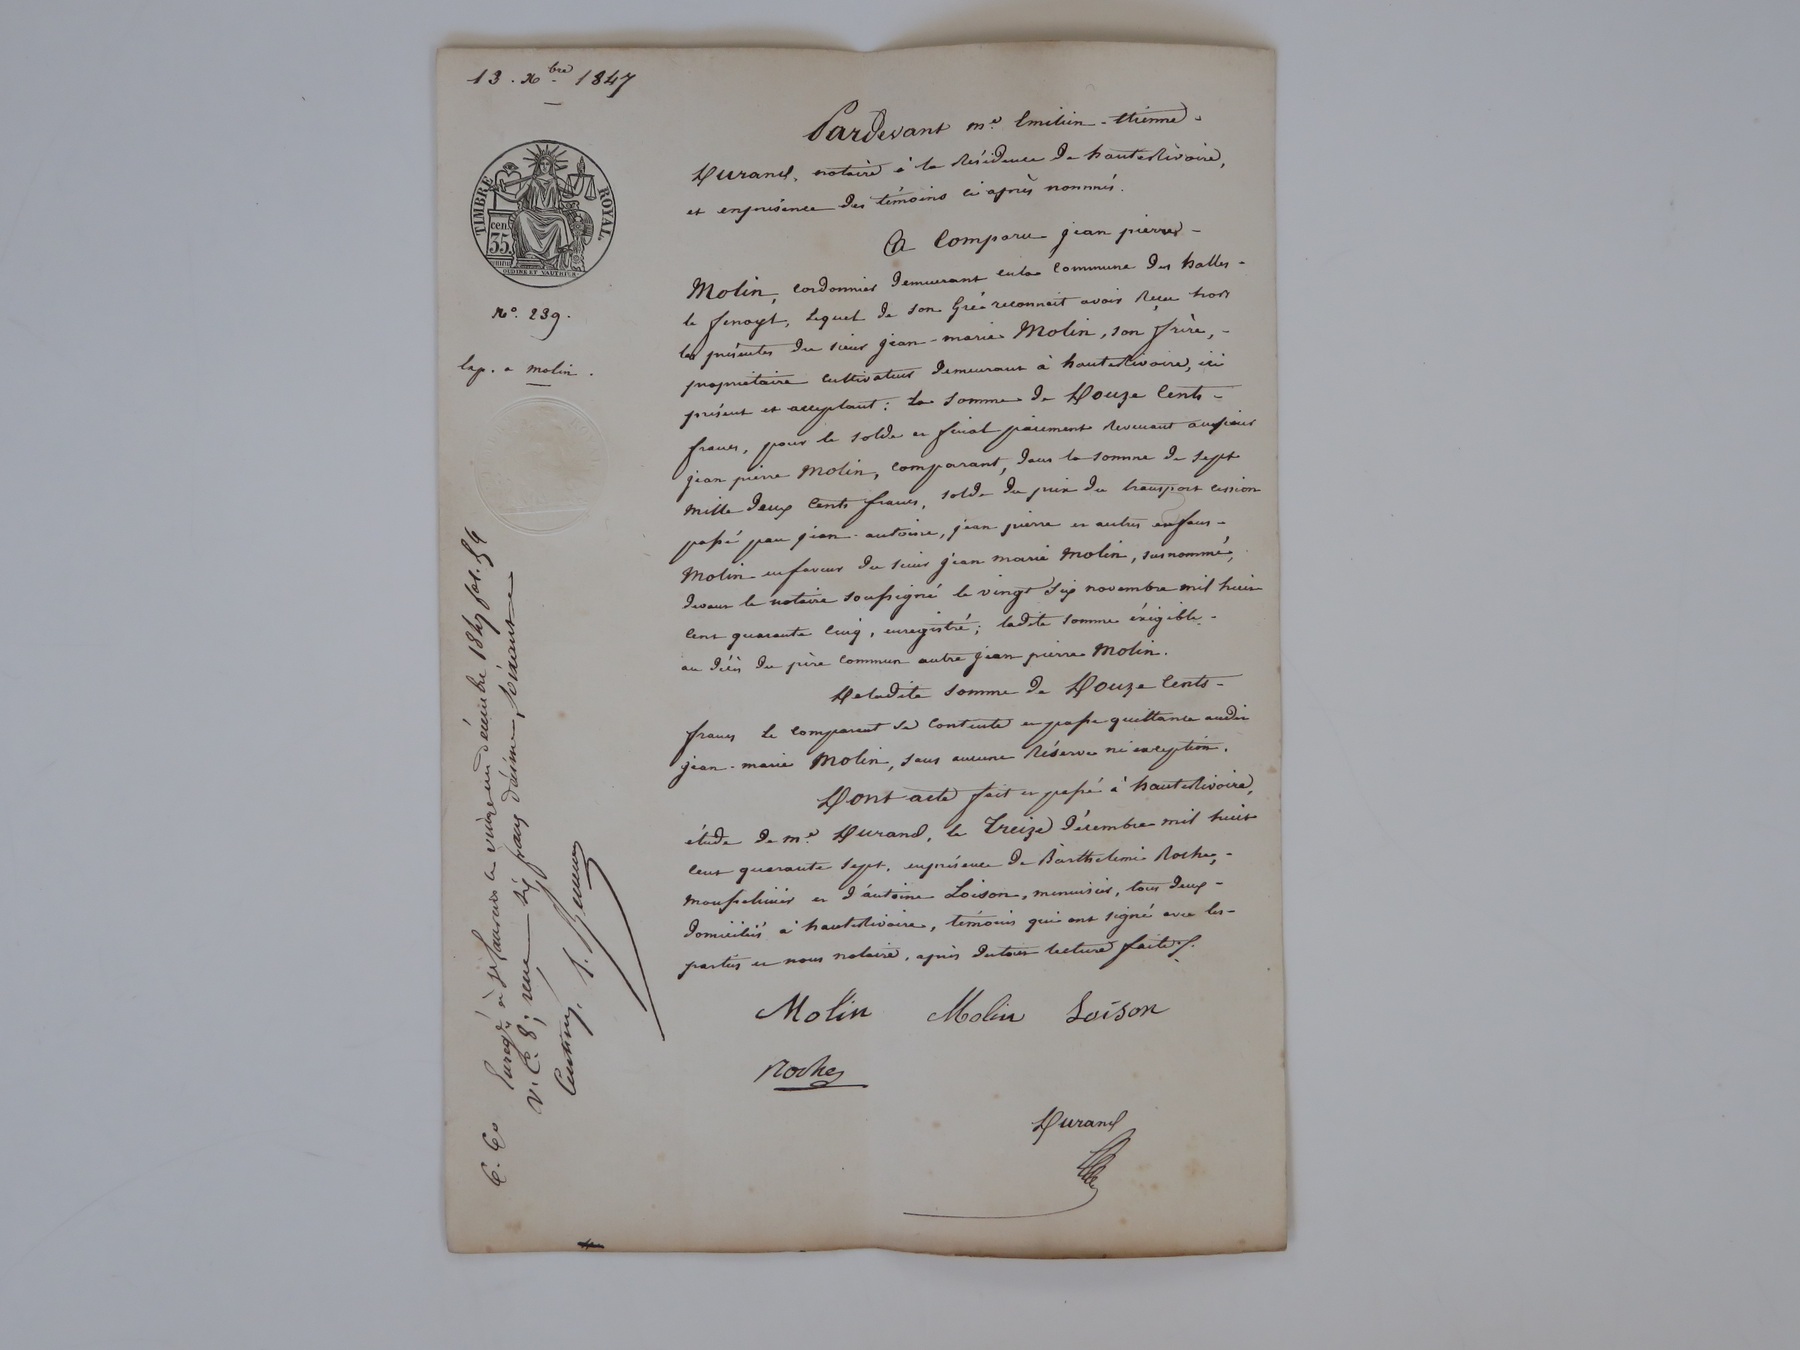 13. Xbre 1847
TIMBRE ROYAL.
cen. 35
OUDINE ET VAUTHIER
No. 239.
Exp. a molin.
Pardevant me. Emilien-Etienne-
Durand, notaire à la Résidence de hauterivoire,
et enprésence des témoins ci après nommés.
A Comparu jean pierre-
Molin, cordonnier demeurant enla Commune des halles-
le fenoyt, lequel de son Gré reconnait avoir Reçu hors
les présentes du sieur jean-marie Molin, son frère,-
propriétaire cultivateur demeurant à hauterivoire, ici
présent et acceptant: la somme de Douze Cents-
francs, pour le solde et final paiement Revenant au sieur
jean pierre Molin, comparant, dans la somme de sept
mille deux Cents francs, solde du prix du transport cession
passé par jean-antoine, jean pierre et autres enfans-
Molin enfaveur du sieur jean marie Molin, susnommé,
devant le notaire soussigné le vingt six novembre mil huit
cent quarante cinq, enregistré; ladite somme éxigible-
au décès du père commun autre jean pierre Molin.
Deladite somme de Douze Cents-
francs le comparant se contente et passe quittance audit
jean-marie Molin, sans aucune Réserve ni exception.
Dont acte fait et passé à hauterivoire,
étude de me. Durand, le Treize décembre mil huit
cent quarante sept, enprésence de Barthelemi Roche,-
mousselinier et d'antoine Loison, menuisier, tous deux-
domiciliés à hauterivoire, témoins qui ont signé avec les-
parties et nous notaire, après dutout lecture faite.
Molin Molin Loison
Roche
Durand
Enregé à st Laurent le vingt un décembre 1847 fol. 54
v. Ce. 8; reçu six francs dixième soixante
Centimes.
6. 60